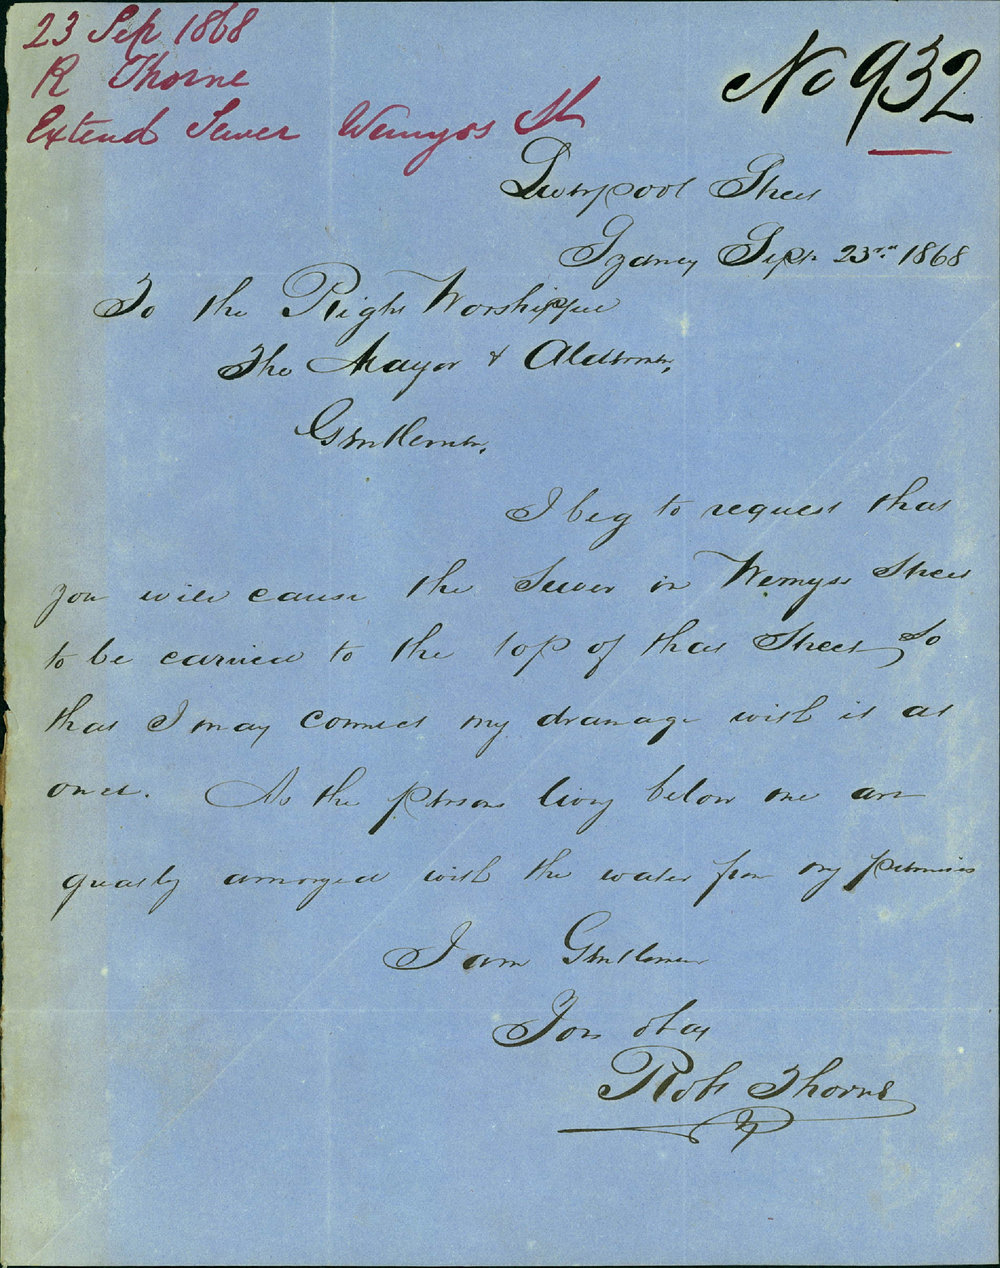 23 Sep 1868
R Thorne
Extend Sewer Wemyss St
No 932
Liverpool Street
Sydney Sept. 23rd 1868
To the Right Worshipful
The Mayor & Aldermen,
Gentlemen,
I beg to request that
you will cause the Sewer in Wemyss Street
to be carried to the top of that Street, So
that I may connect my drainage with it at
once. As the persons living below me are
greatly annoyed with the water from my premises
I am Gentlemen
Yours obdy
Robt Thorne